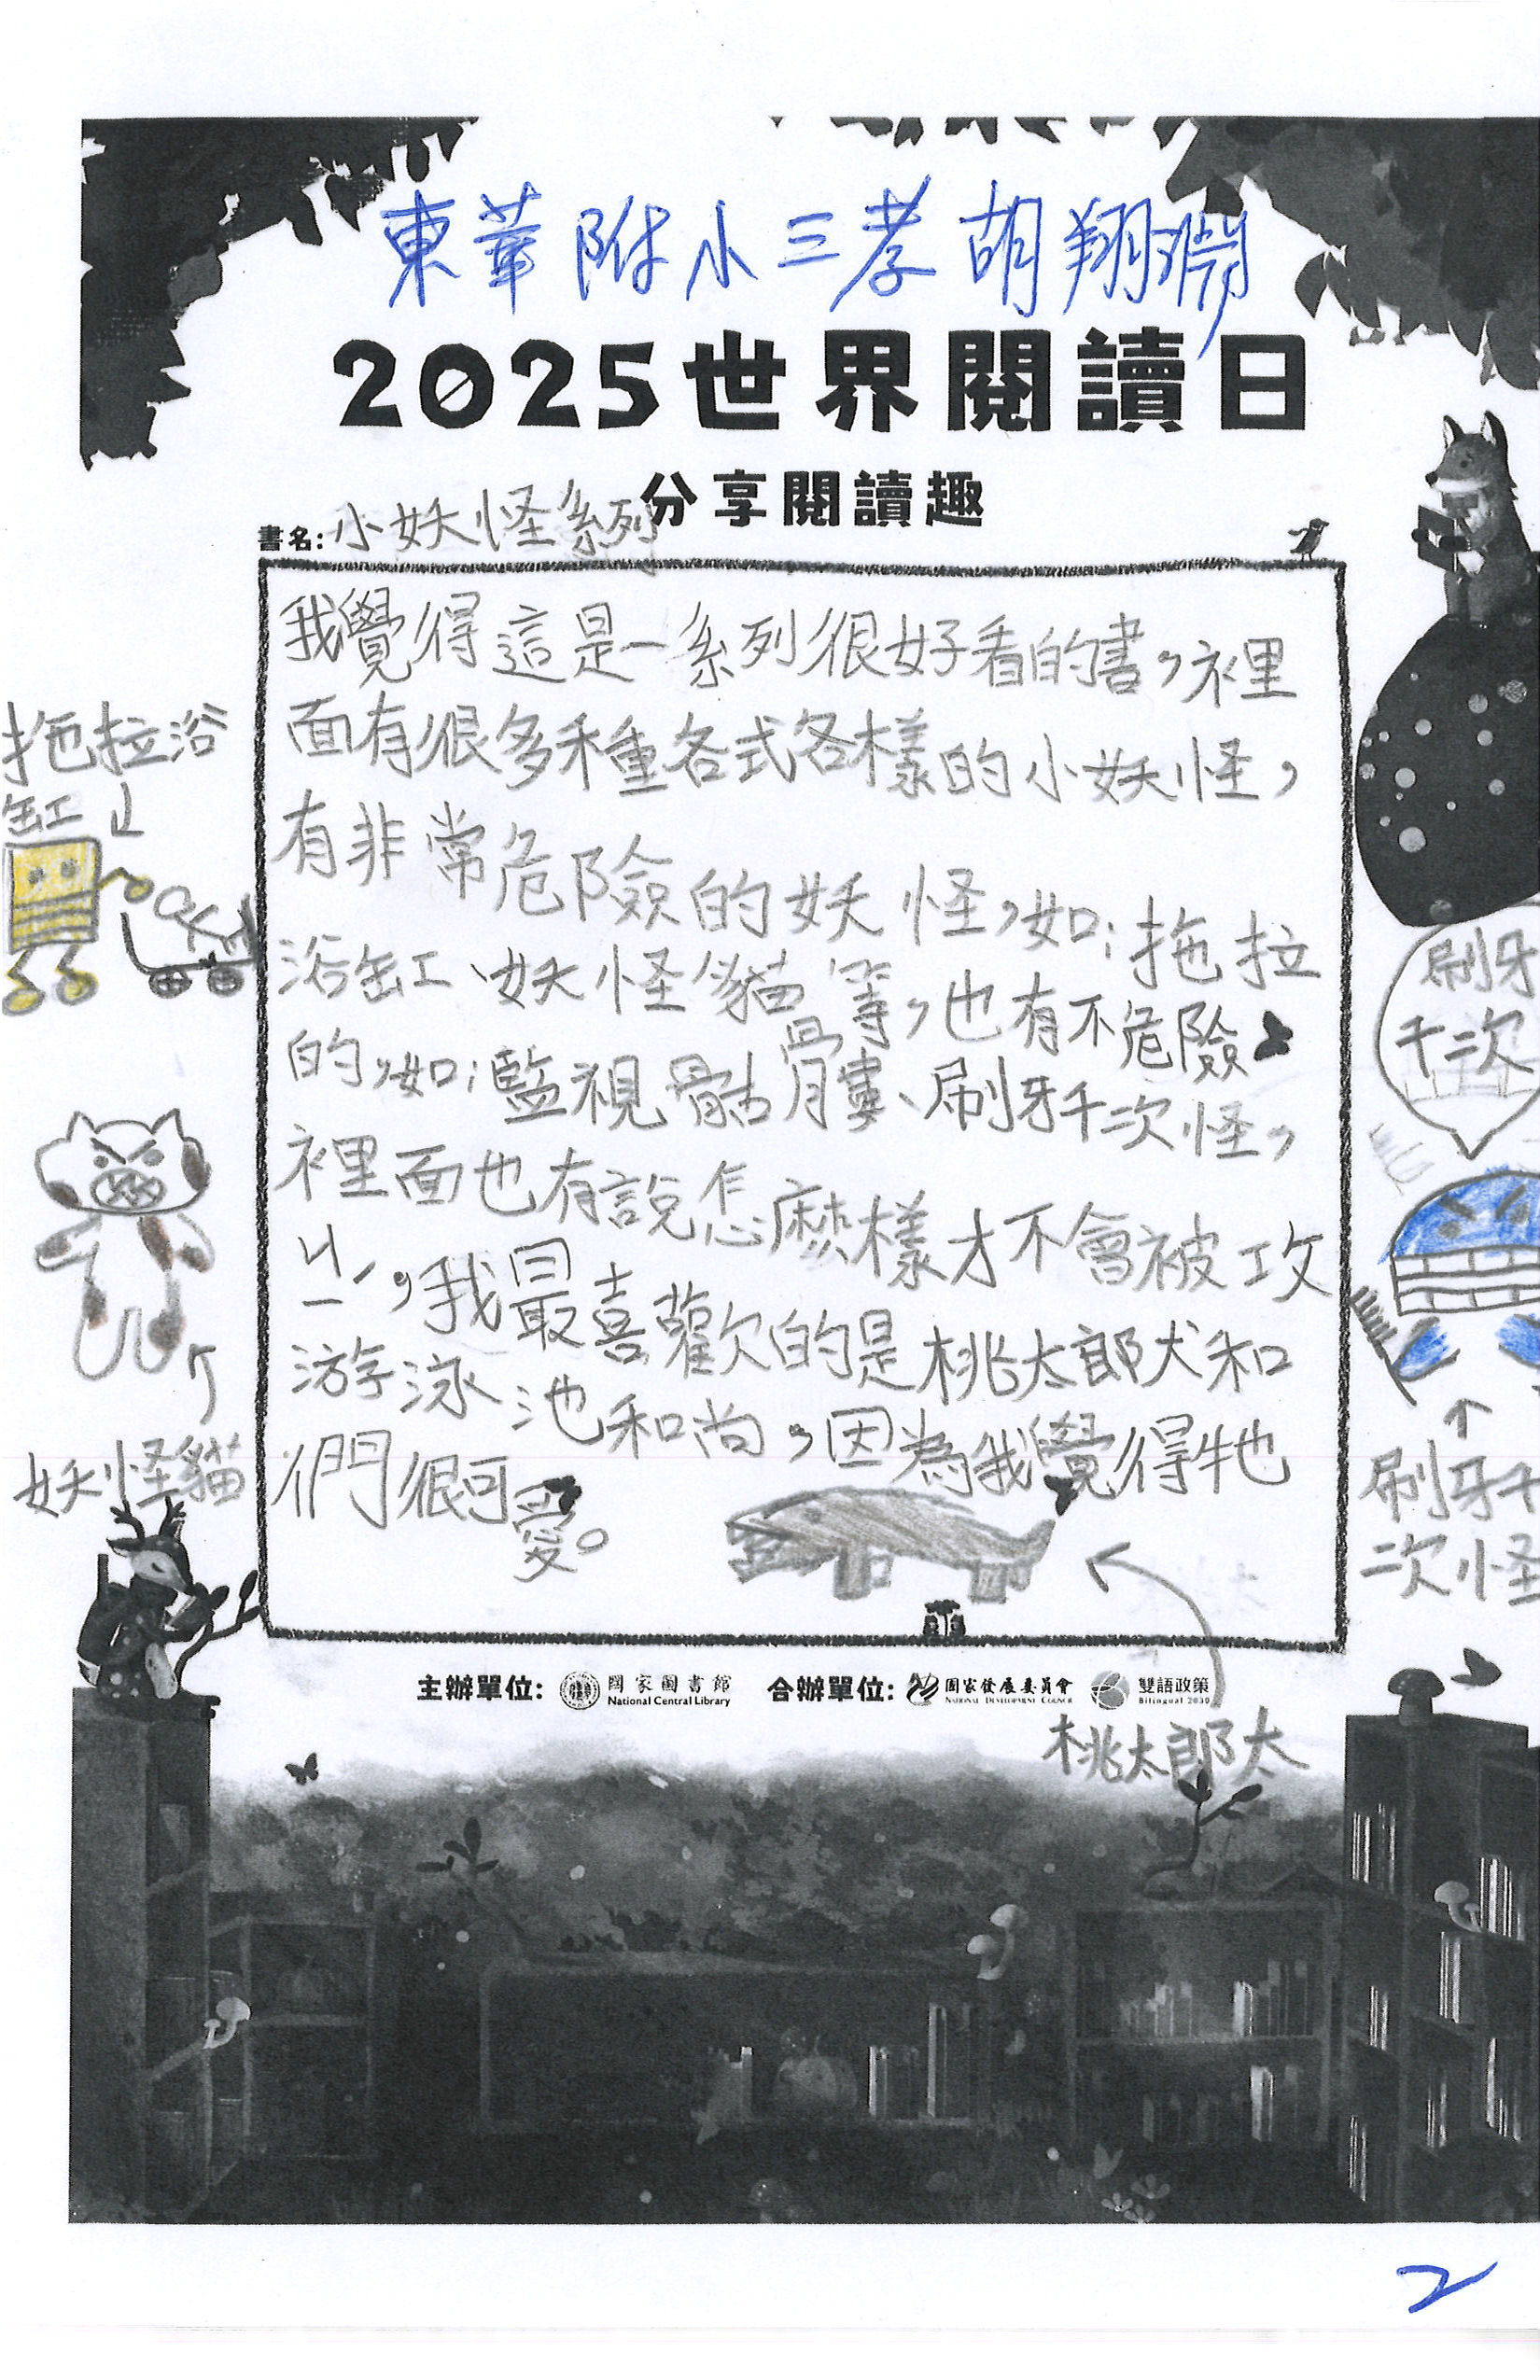 東華附小三孝 胡翔淵
2025世界閱讀日
分享閱讀趣
書名:小妖怪系列
我覺得這是一系列很好看的書,裡
面有很多種各式各樣的小妖怪,
有非常危險的妖怪,如:拖拉
浴缸、妖怪貓等,也有不危險
的,如:監視骷髏、刷牙千次怪,
裡面也有說怎麼樣才不會被攻
ㄐㄧˊ,我最喜歡的是桃太郎犬和
游泳池和尚,因為我覺得牠
們很可愛。
拖拉浴
缸↓
妖怪貓
刷牙
千次
↑
刷牙千
二次怪
桃太郎犬
主辦單位: 國家圖書館 National Central Library 合辦單位: 國家發展委員會 National Development Council 雙語政策 Bilingual 2030
2